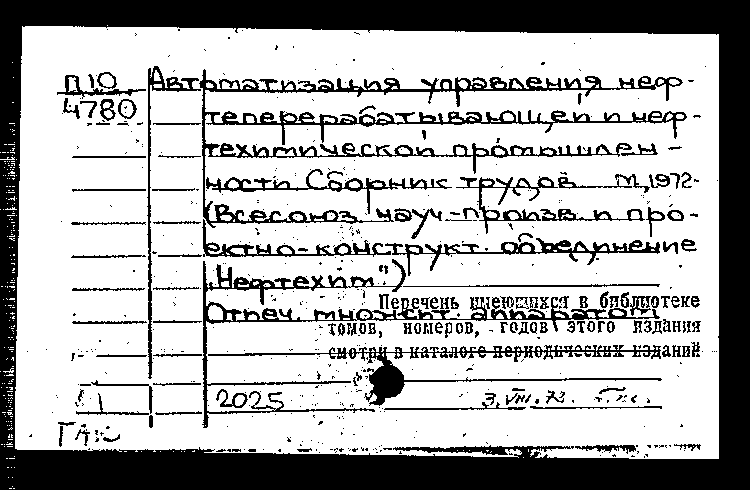 П10
4780
Автоматизация управления неф-
теперерабатывающей и неф-
техимической промышлен-
ности Сборник трудов. М., 1972-
(Всесоюз. науч.-произв. и про-
ектно-конструкт. объединение
"Нефтехим")
Отпеч. множит. аппаратом
Перечень имеющихся в библиотеке
томов, номеров, годов этого издания
смотри в каталоге периодических изданий
2025
3.VIII.73.